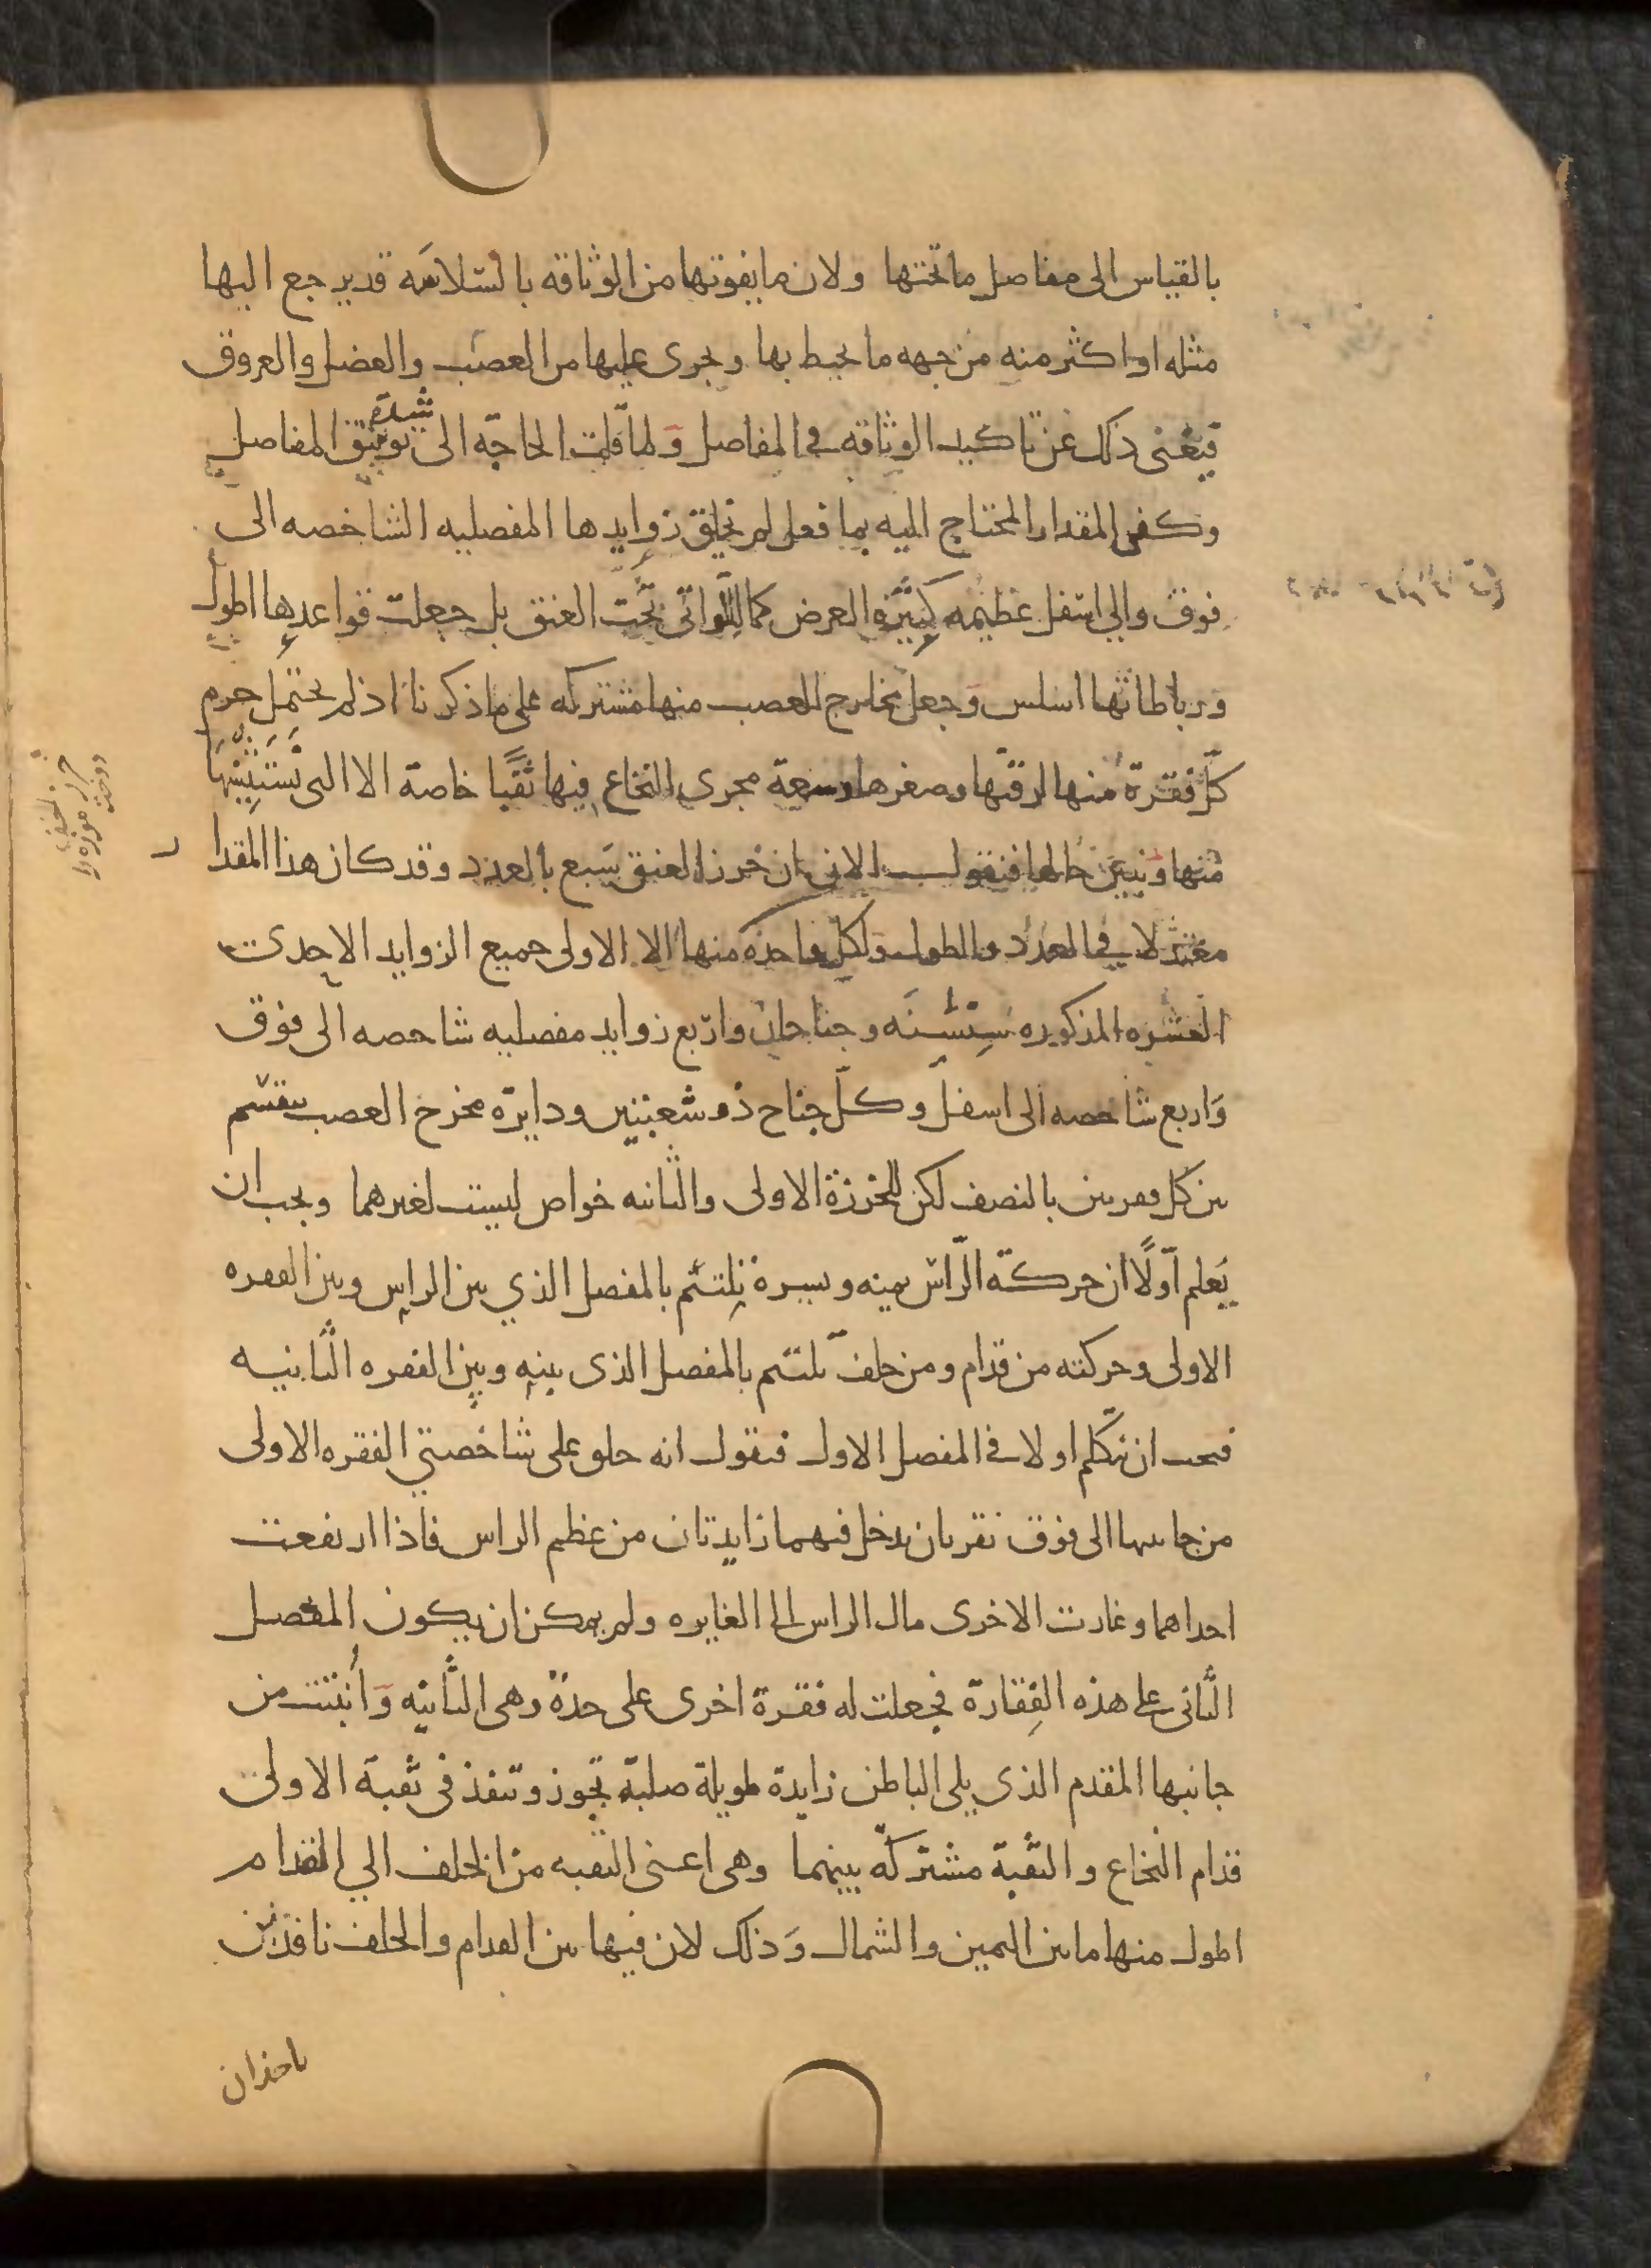 بالقياس الى مفاصل ما تحتها ولان ما يفوتها من الوثاقه بالسلاسه قد يرجع اليها
مثله او اكثر منه من جهه ما يحيط بها ويجرى عليها من العصب والعضل والعروق
فيغنى ذلك عن تاكيد الوثاقه في المفاصل ولما قلت الحاجة الى شدة توثيق المفاصل
وكفى المقدار المحتاج اليه بما فعل لم تخلق زوايدها المفصليه الشاخصه الى
فوق والي اسفل عظيمه كثيرة العرض كما للواتى تحت العنق بل جعلت قواعدها اطول
ورباطاتها اسلس وجعل مخارج العصب منها مشتركه على ما ذكرنا اذ لم يحتمل جرم
كل فقرة منها لرقتها وصغرها وسعة مجرى النخاع فيها ثقبا خاصة الا التى نستثنيها
منها ونبين حالها فنقول الان ان خرز العنق سبع بالعدد وقد كان هذا المقدار
معتدلا في العدد والطول ولكل واحدة منها الا الاولى جميع الزوايد الاحدى
العشره المذكوره سنسنه وجناحان واربع زوايد مفصليه شاخصه الى فوق
واربع شاخصه الى اسفل وكل جناح ذو شعبتين ودايرة مخرج العصب تنقسم
بين كل فقرتين بالنصف لكن للخرزة الاولى والثانيه خواص ليست لغيرهما ويجب ان
يعلم اولًا ان حركة الراس يمينه ويسرة تلتئم بالمفصل الذي بين الراس وبين الفقره
الاولى وحركته من قدام ومن خلف تلتئم بالمفصل الذى بينه وبين الفقره الثانيه
فيجب ان نتكلم اولا في المفصل الاول فنقول انه خلق على شاخصتي الفقره الاولى
من جانبيها الى فوق نقرتان يدخل فيهما زايدتان من عظم الراس فاذا ارتفعت
احداهما وغارت الاخرى مال الراس الى الغايره ولم يمكن ان يكون المفصل
الثانى على هذه الفِقارة فجعلت له فقرة اخرى على حدة وهى الثانيه وأنبتت من
جانبها المقدم الذى يلى الباطن زايدة طويلة صلبة تجوز وتنفذ فى ثقبة الاولى
قدام النخاع والثقبة مشتركة بينهما وهى اعنى الثقبه من الخلف الي القدام
اطول منها ما بين اليمين والشمال وذلك لان فيها بين القدام والخلف نافذين
ياخذان